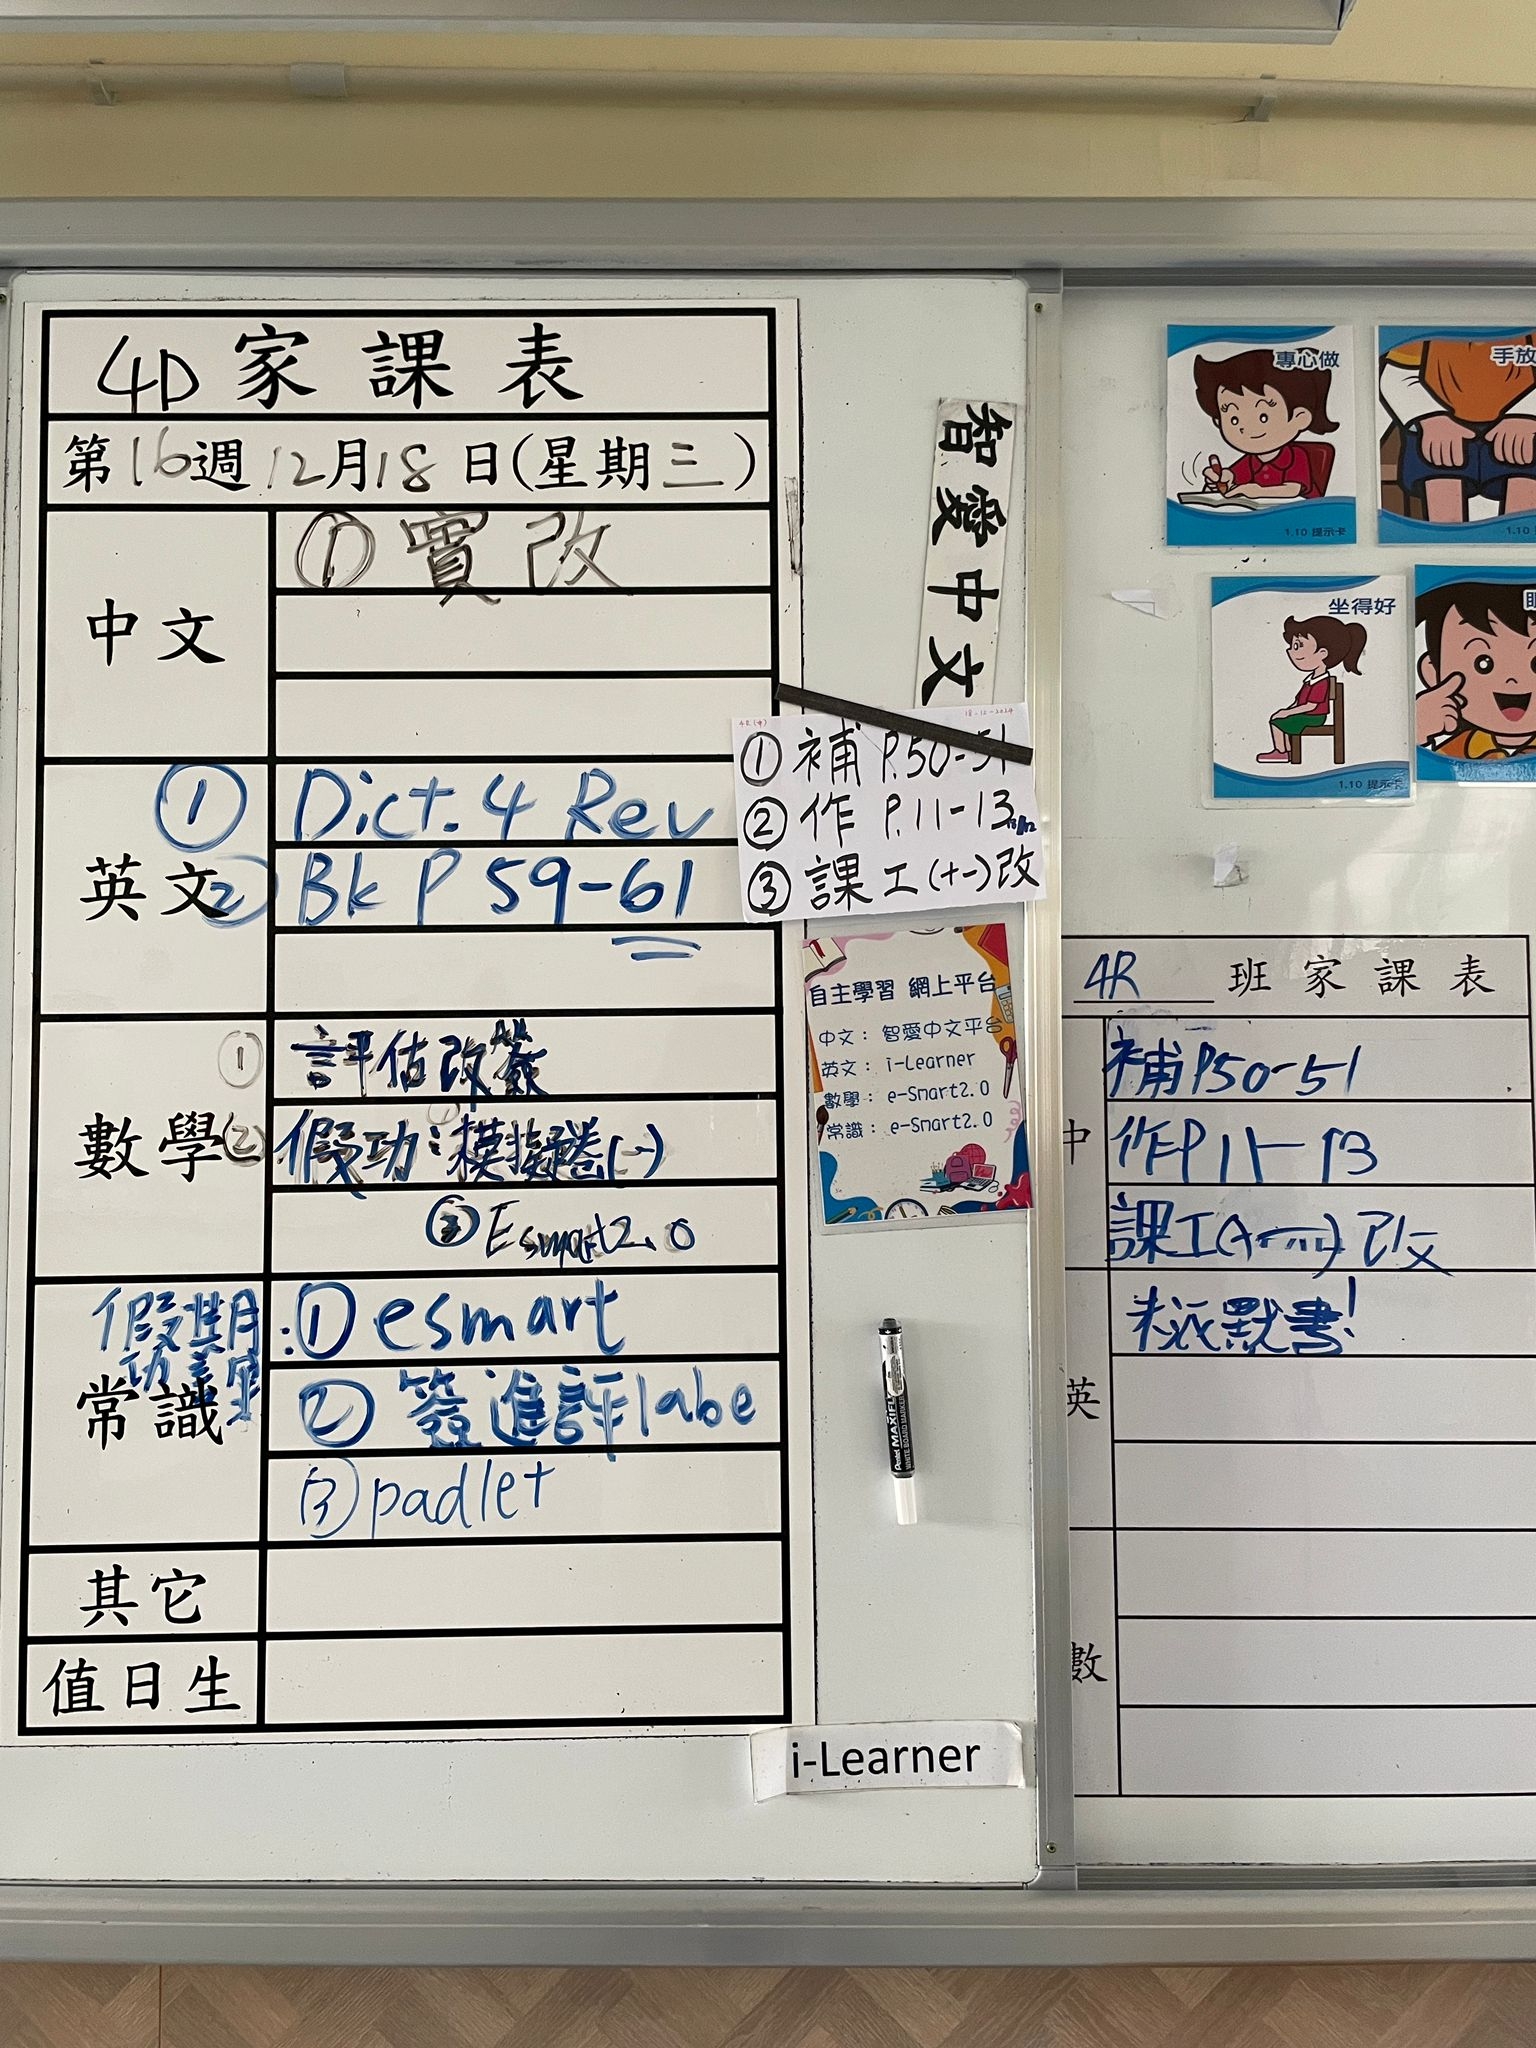 4D 家課表
第16週12月18日(星期三)
中文
① 實改
英文
① Dict. 4 Rev
② Bk P 59-61
數學
① 評估改簽
② 假功:模擬卷(一)
③ Esmart2.0
常識
假期功課:① esmart
② 簽進評labe
③ padlet
其它
值日生
智愛中文
4R (中)
18-12-2024
① 補 P.50-51
② 作 P.11-13
③ 課工(十一)改
自主學習 網上平台
中文: 智愛中文平台
英文: i-Learner
數學: e-Smart2.0
常識: e-Smart2.0
i-Learner
專心做
1.10 提示卡
手放
1.10
坐得好
1.10 提示卡
4R 班家課表
中
補P50-51
作P11-13
課工 改
派默書!
英
數